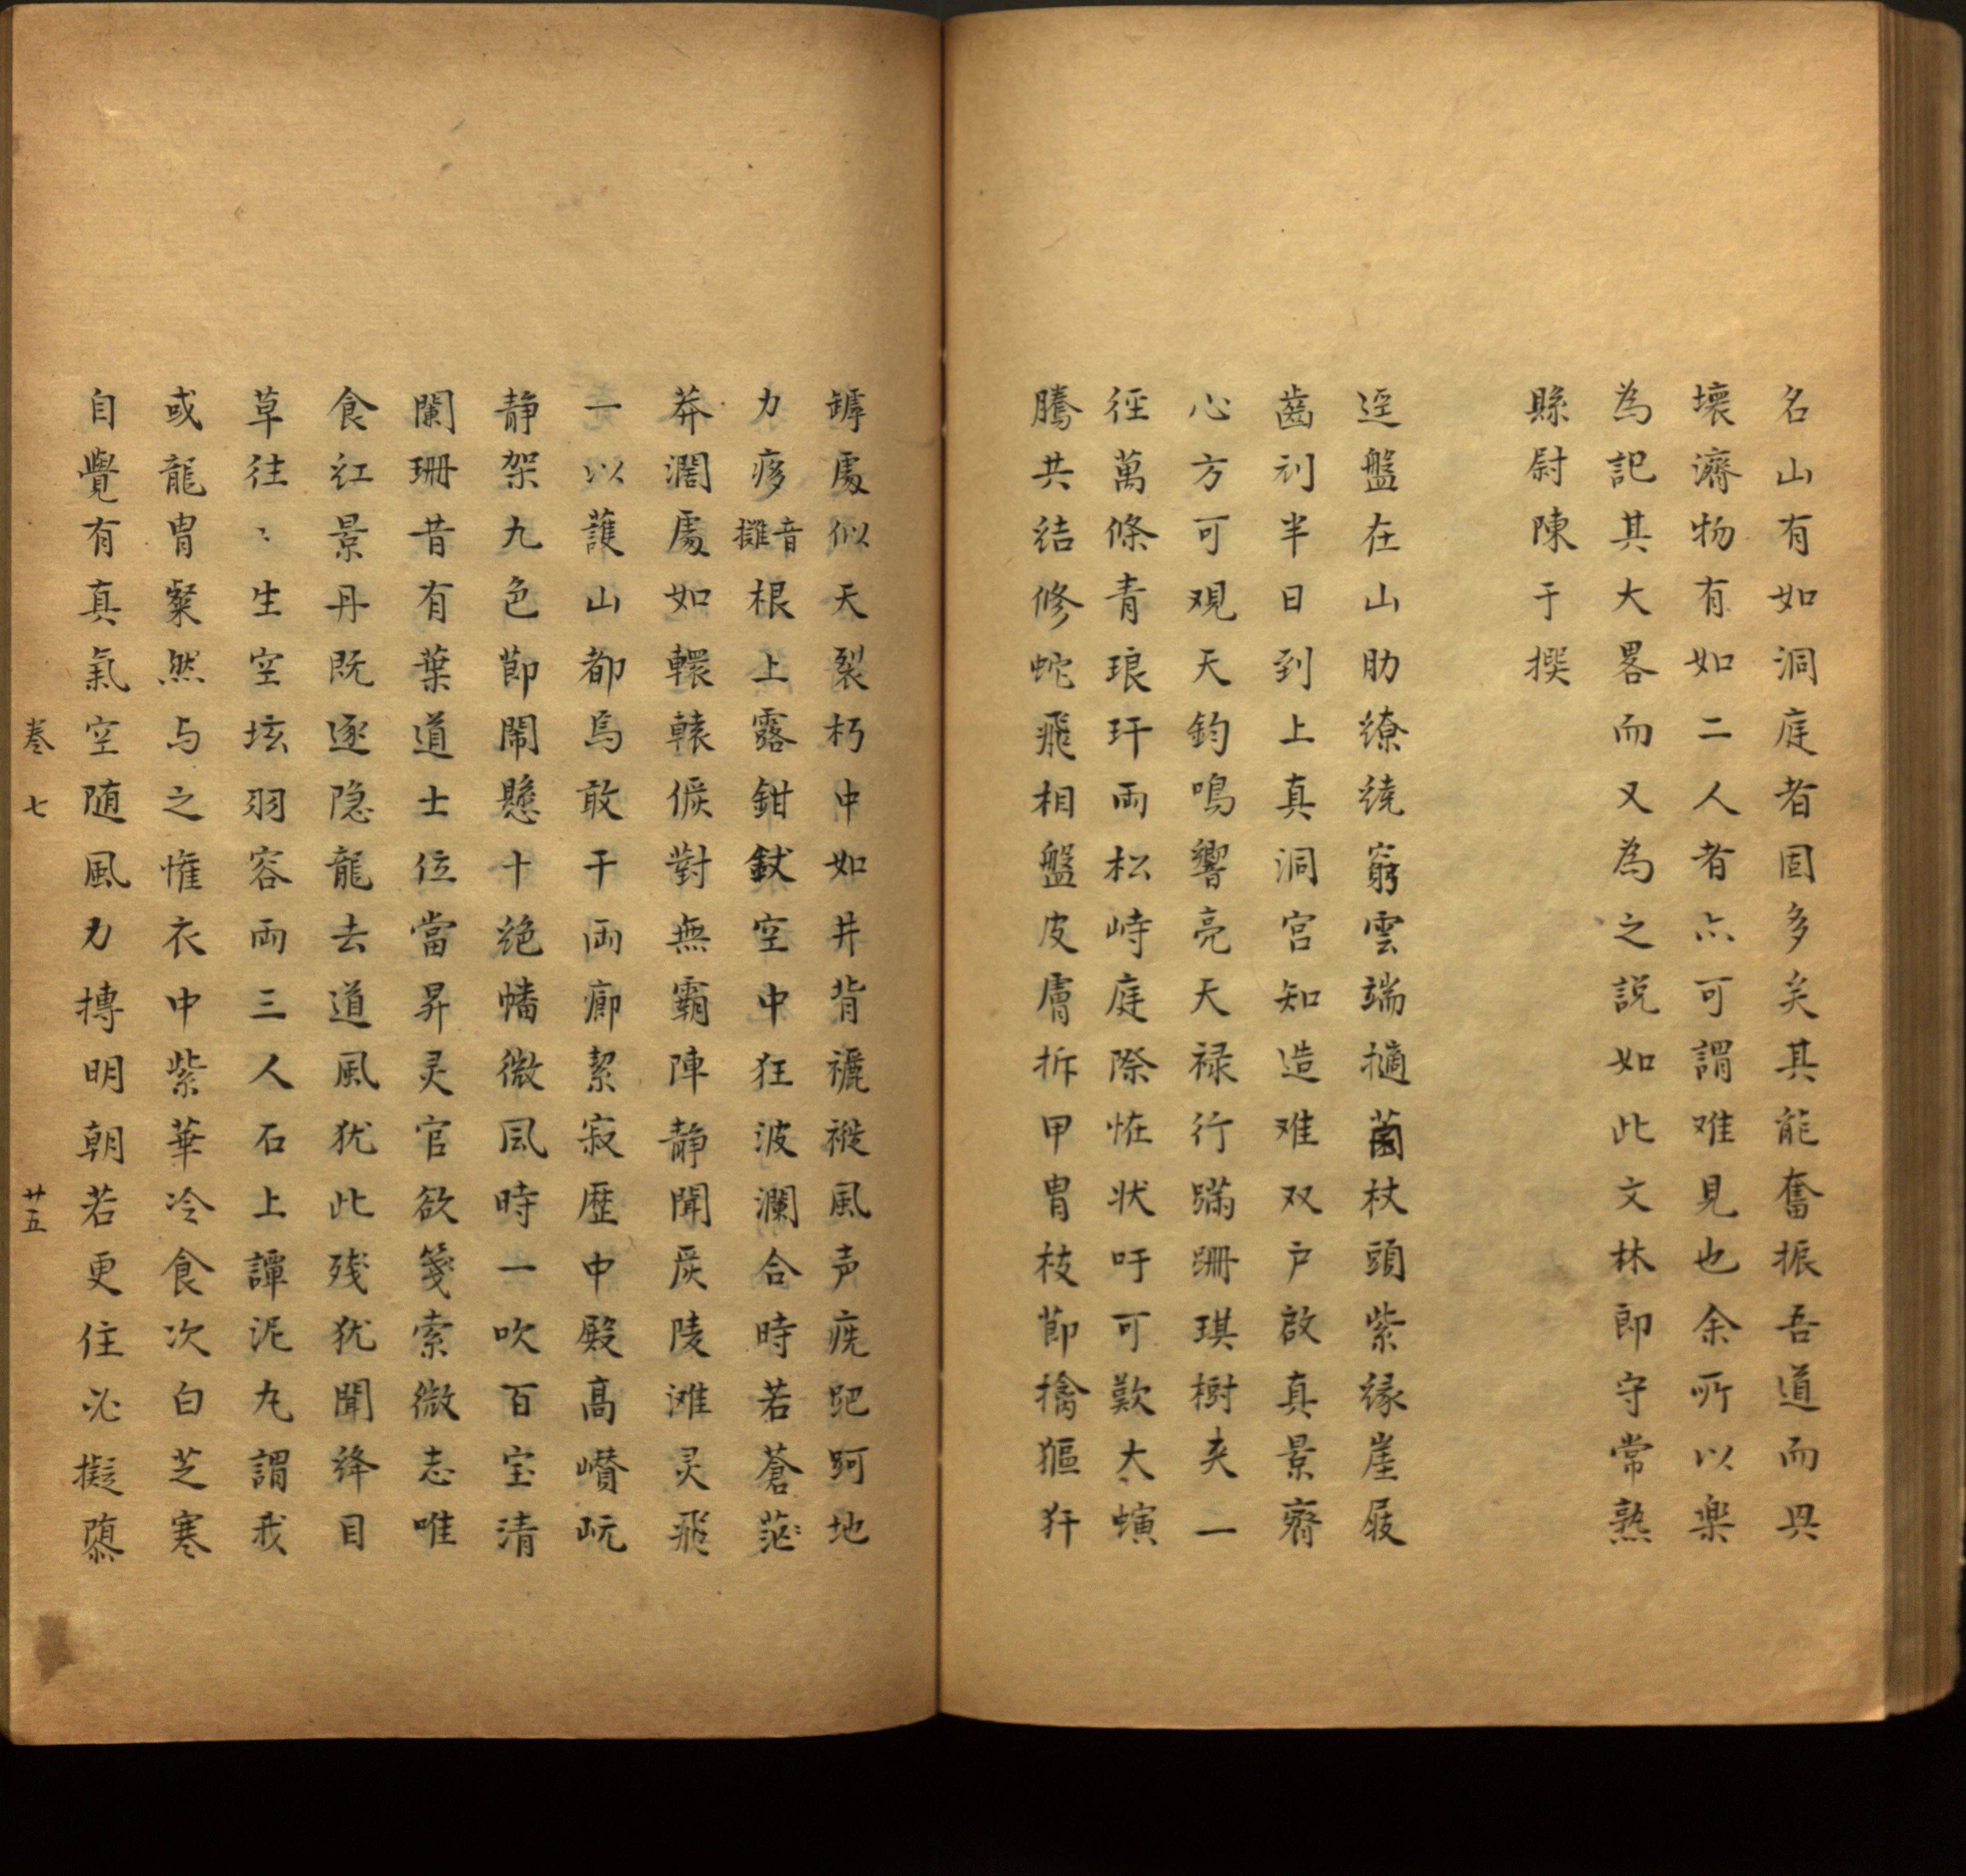 名山有如洞庭者固多矣其能奮振吾道而興
壞濟物有如二人者亦可謂难見也余所以樂
為記其大畧而又為之説如此文林郎守常熟
縣尉陳于撰
逕盤在山肋繚繞窮雲端擿菌杖頭紫縁崖屐
齒刓半日到上真洞宫知造难双户啟真景齋
心方可观天鈞鳴響亮天禄行蹣跚琪樹夹一
徑萬條青琅玕兩松峙庭際恠状吁可歎大螾
騰共結修蛇飛相盤皮膚拆甲胄枝節擒貙犴
罅處似天裂朽中如井背襹褷風声疣跁跒地
力痑攤音根上露鉗釱空中狂波瀾合時若蒼茫
莽濶處如轘轅俟對無霸陣静聞炭陵滩灵飛
一以護山都焉敢干両廊絜寂歴中殿高巑岏
静架九色節閙懸十絶幡微風時一吹百宝清
闌珊昔有葉道士位當昇灵官欲箋索微志唯
食红景丹既逐隐龍去道風犹此残犹聞绛目
草往〻生空坛羽容両三人石上譚泥丸謂我
或龍胄粲然与之惟衣中紫華冷食次白芝寒
自覺有真氣空随風力搏明朝若更住必擬隳
巻七 廿五